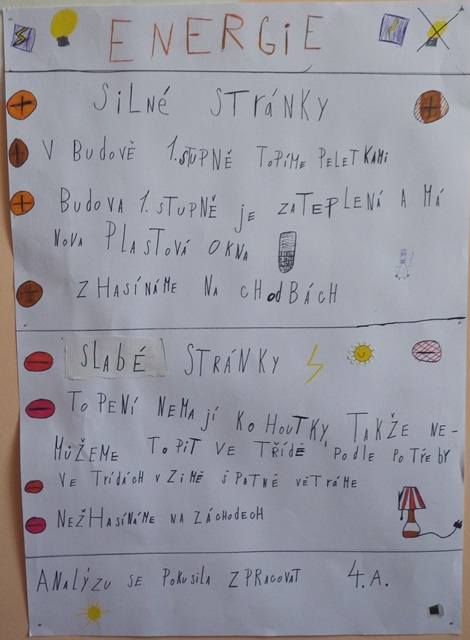 ENERGIE
SILNÉ STRÁNKY
V BUDOVĚ 1.STUPNĚ TOPÍME PELETKAMI
BUDOVA 1.STUPNĚ JE ZATEPLENÁ A MÁ
NOVA PLASTOVÁ OKNA
ZHASÍNÁME NA CHODBÁCH
SLABÉ STRÁNKY
TOPENÍ NEMAJÍ KOHOUTKY, TAKŽE NE-
MŮŽEME TOPIT VE TŘÍDĚ PODLE POTŘEBY
VE TŘÍDÁCH V ZIMĚ ŠPATNĚ VĚTRÁME
NEŽHASÍNÁME NA ZÁCHODECH
ANALÝZU SE POKUSILA ZPRACOVAT 4.A.